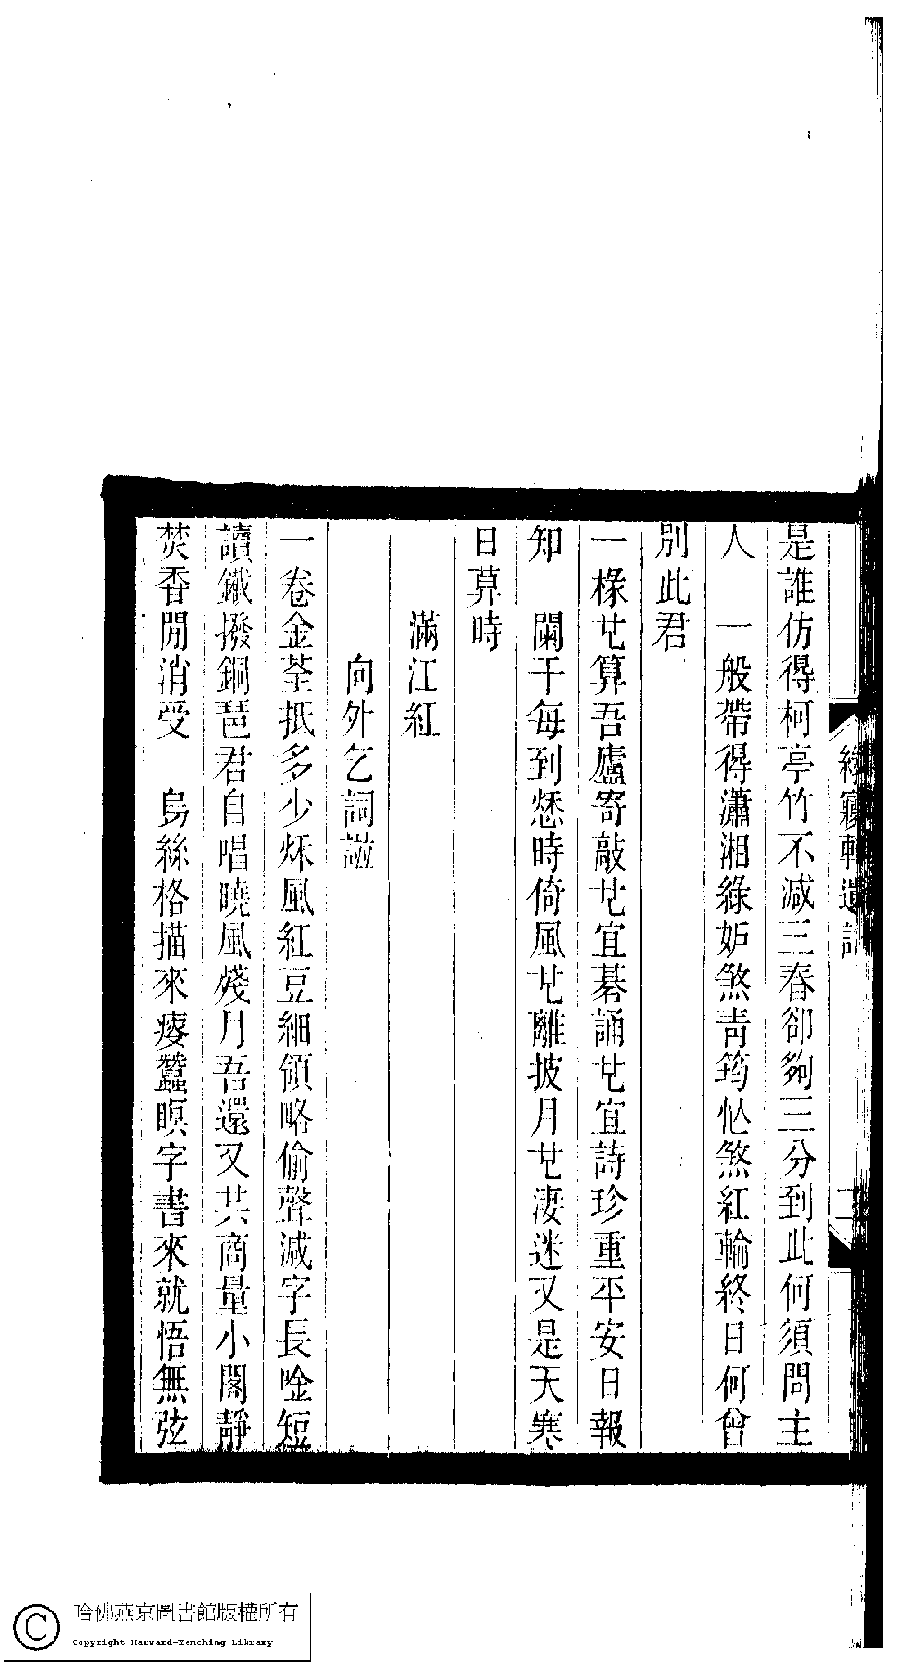 是誰仿得柯亭竹不減三春卻夠三分到此何須問主
人　一般帶得瀟湘綠妒煞青筠忙煞紅輪終日何曾
別此君
一椽廿算吾廬寄敲廿宜棊誦廿宜詩珍重平安日報
知　闌干每到愁時倚風廿離披月廿淒迷又是天寒
日莫時
滿江紅
向外乞詞
一卷金荃抵多少秌風紅豆細領略偷聲減字長唫短
讀鐵撥銅琶君自唱曉風殘月吾還又共商量小閣靜
焚香閒消受　烏絲格描來瘦蠶眠字書來就悟無弦
二
哈佛燕京圖書館版權所有
Copyright Harvard-Yenching Library